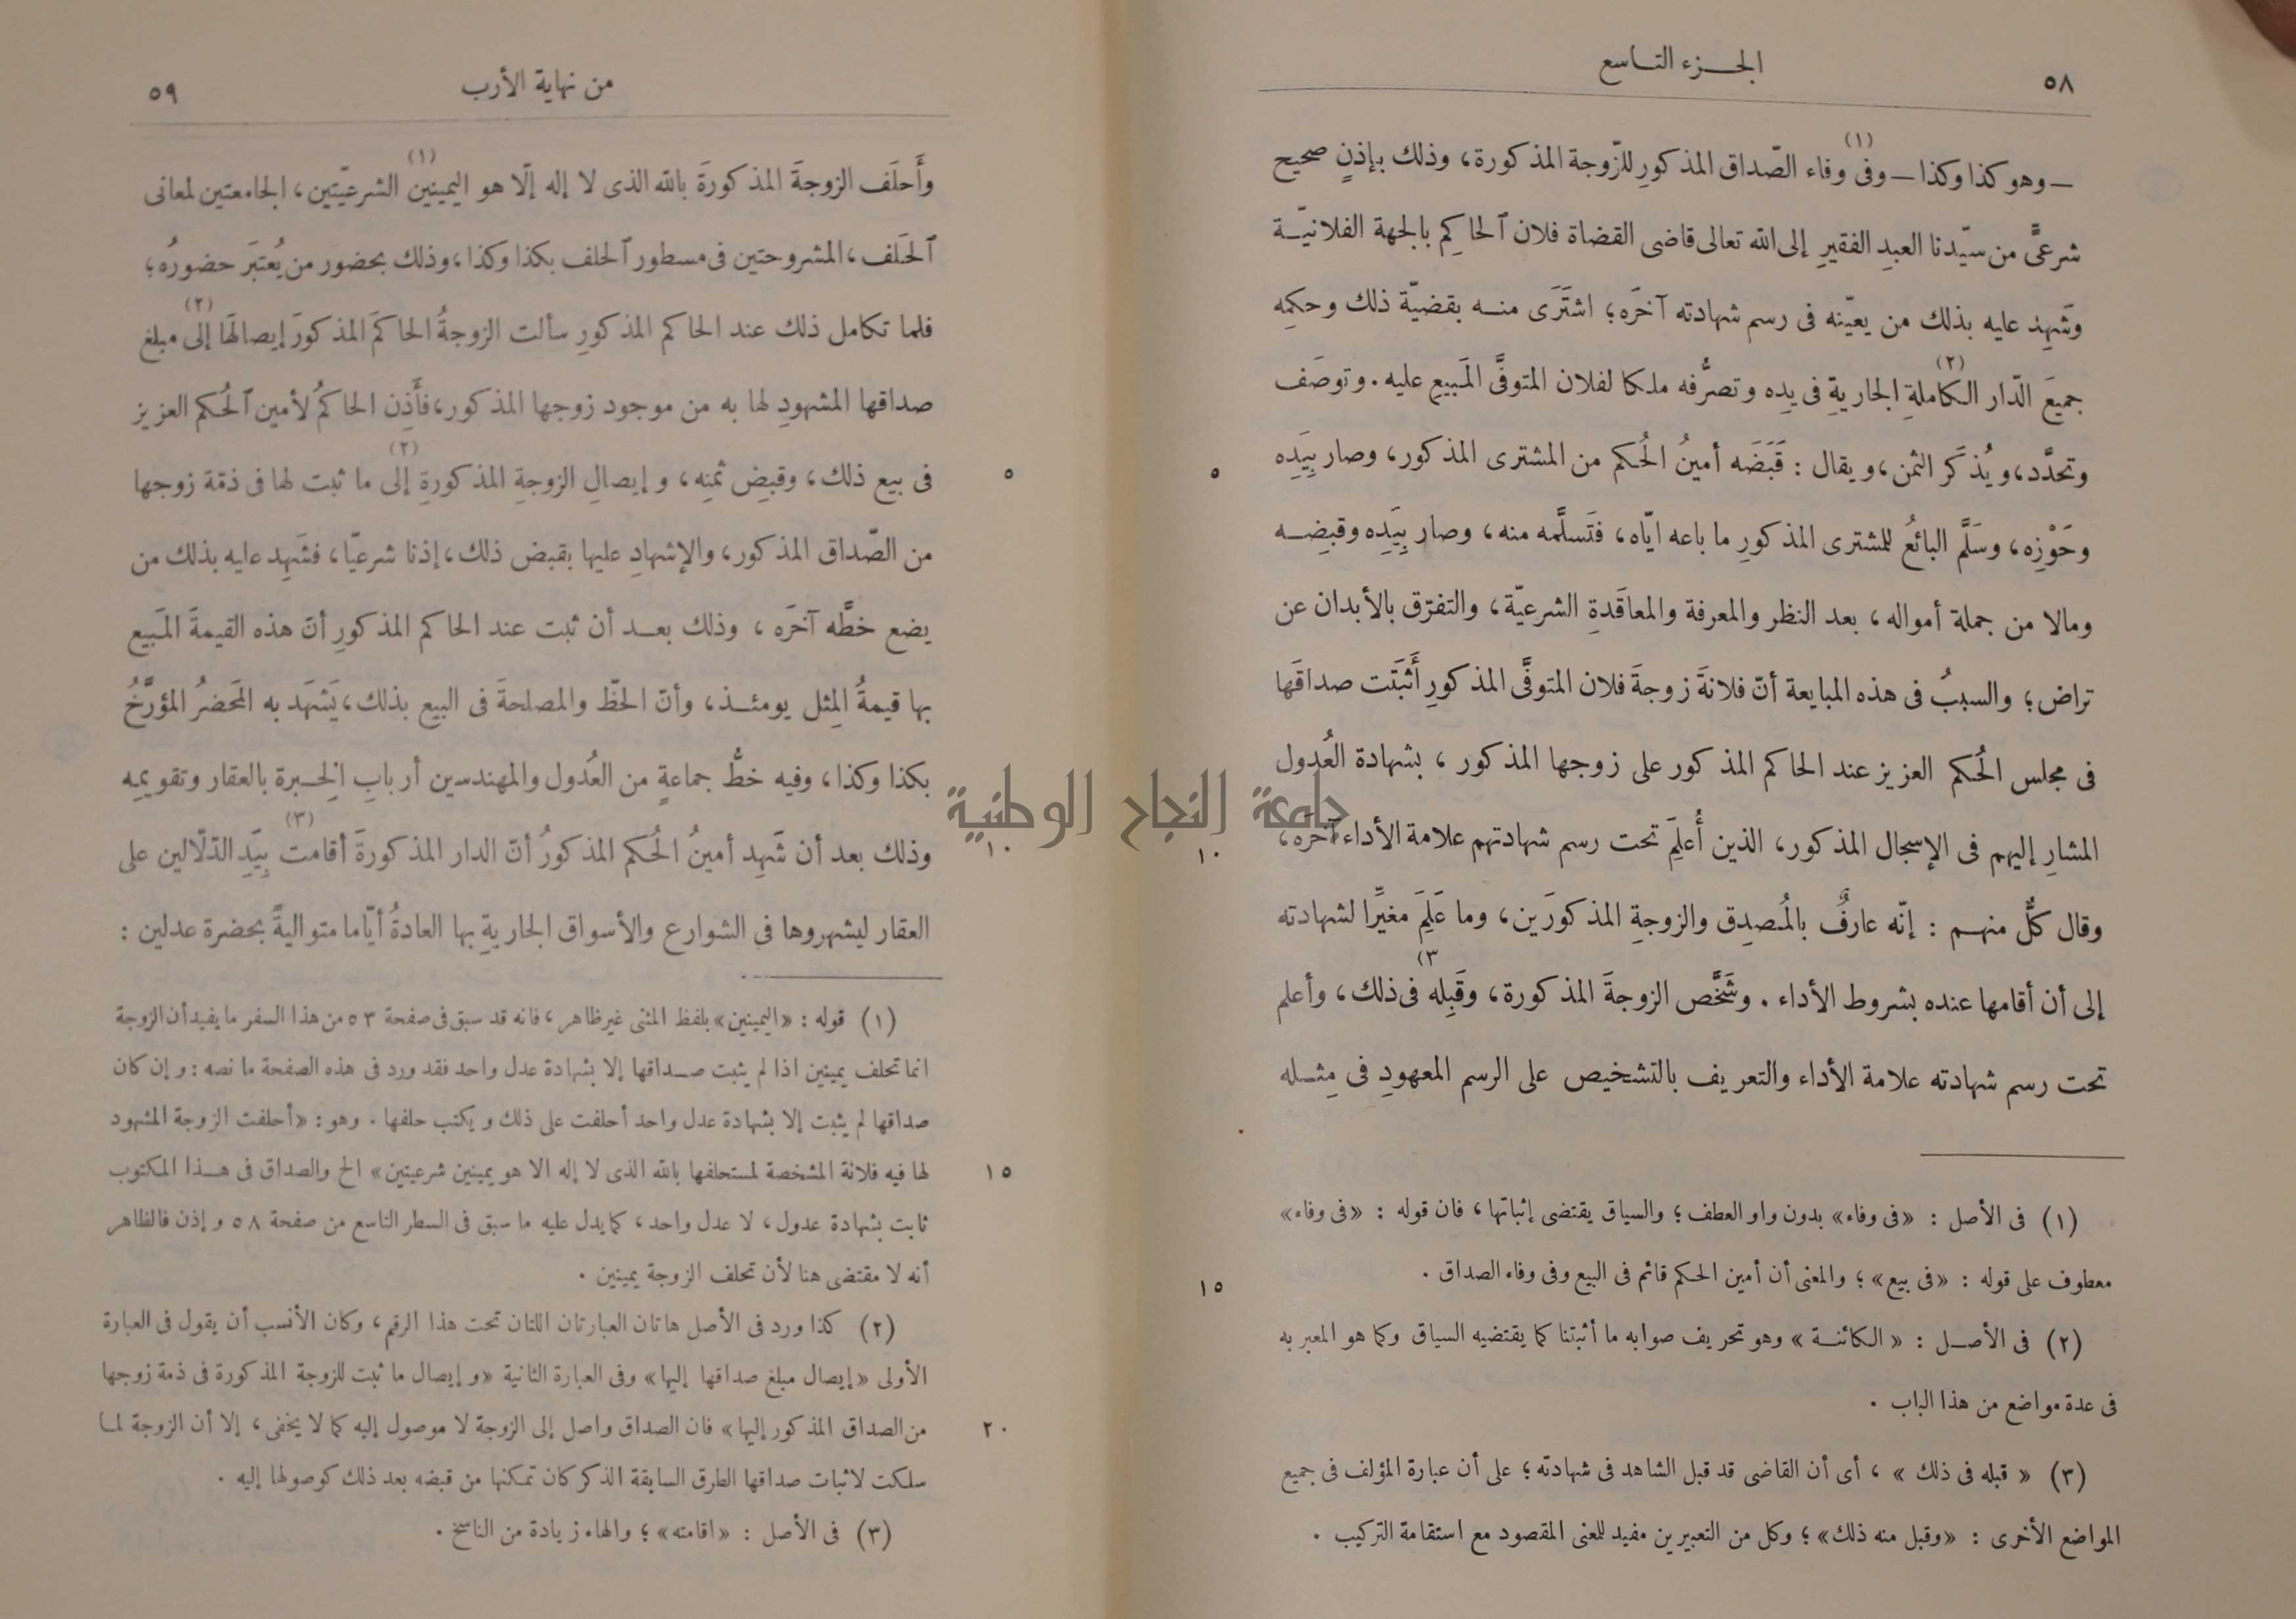 ٥٨
الجزء التاسع
— وهو كذا وكذا — وفى (١) وفاء الصّداق المذكورِ للزّوجة المذكورة، وذلك بإذنٍ صحيح
شرعىٍّ من سيّدنا العبدِ الفقيرِ إلى الله تعالى قاضى القضاة فلان ٱلحاكِمِ بالجهة الفلانيّة
وشَهِد عليه بذلك من يعيّنه فى رسم شهادته آخرَه؛ اشتَرَى منه بقضيّة ذلك وحكمِه
جميعَ الدّار الكاملةِ (٢) الجاريةِ فى يدِه وتصرُّفه ملكا لفلان المتوفَّى المَبيعِ عليه. وتوصَف
وتحدَّد، ويُذكَر الثمن، ويقال : قَبَضَه أمينُ الحُكم من المشترى المذكور، وصار بِيَدِه
وحَوْزِه، وسَلَّم البائعُ للمشترى المذكورِ ما باعه ايّاه، فَتَسلَّمه منه، وصار بِيَدِه وقبضِه
ومالا من جملة أمواله، بعد النظر والمعرفة والمعاقَدةِ الشرعيّة، والتفرّق بالأبدان عن
تراض؛ والسببُ فى هذه المبايعة أنّ فلانةَ زوجةَ فلان المتوفَّى المذكورِ أَثبَتَت صداقَها
فى مجلس الحُكم العزيز عند الحاكم المذكور على زوجها المذكور، بشهادة العُدول
المشارِ إليهم فى الإسجال المذكور، الذين أُعلِمَ تحت رسم شهادتهم علامة الأداء آخرَه،
وقال كلٌّ منهم : إنّه عارفٌ بالمُصدِق والزوجةِ المذكورَين، وما عَلِمَ مغيِّرا لشهادته
إلى أن أقامها عنده بشروط الأداء. وشَخَّص الزوجةَ المذكورة، وقَبِله (٣ فى ذلك، وأعلم
تحت رسم شهادته علامة الأداء والتعريف بالتشخيص على الرسم المعهودِ فى مِثله
٥
١٠
١٥
(١) فى الأصل : «فى وفاء» بدون واو العطف؛ والسياق يقتضى إثباتها، فان قوله : «فى وفاء»
معطوف على قوله : «فى بيع»؛ والمعنى أن أمين الحكم قائم فى البيع وفى وفاء الصداق.
(٢) فى الأصل : «الكائنة» وهو تحريف صوابه ما أثبتنا كما يقتضيه السياق وكما هو المعبر به
فى عدة مواضع من هذا الباب.
(٣) «قبله فى ذلك»، أى أن القاضى قد قبل الشاهد فى شهادته؛ على أن عبارة المؤلف فى جميع
المواضع الأخرى : «وقبل منه ذلك»؛ وكل من التعبيرين مفيد للمعنى المقصود مع استقامة التركيب.
جامعة النجاح الوطنية
من نهاية الأرب
٥٩
وأَحلَف الزوجةَ المذكورةَ بالله الذى لا إله إلّا هو اليمينين (١) الشرعيّتين، الجامعتين لمعانى
ٱلحَلف، المشروحتين فى مسطور ٱلحلف بكذا وكذا، وذلك بحضور من يُعتبَر حضورُه؛
فلما تكامل ذلك عند الحاكم المذكورِ سألت الزوجةُ الحاكمَ المذكورَ إيصالَها إلى (٢) مبلغ
صداقها المشهودِ لها به من موجود زوجها المذكور، فأَذِن الحاكمُ لأمين ٱلحُكم العزيز
فى بيع ذلك، وقبضِ ثمنِه، وإيصالِ الزوجةِ المذكورةِ إلى (٢) ما ثبت لها فى ذمّة زوجها
من الصّداق المذكور، والإشهادِ عليها بقبض ذلك، إذنا شرعيّا، فشَهِد عليه بذلك من
يضع خطَّه آخرَه، وذلك بعد أن ثبت عند الحاكم المذكورِ أنّ هذه القيمةَ المَبيع
بها قيمةُ المِثل يومئذ، وأنّ الحظّ والمصلحةَ فى البيع بذلك، يَشهَد به المَحضرُ المؤرَّخُ
بكذا وكذا، وفيه خطُّ جماعةٍ من العُدول والمهندسين أربابِ الخِبرة بالعقار وتقويمِه
وذلك بعد أن شَهِد أمينُ الحُكم المذكورُ أنّ الدار المذكورةَ أقامت (٣) بِيَدِ الدّلّالين على
العقار ليشهروها فى الشوارع والأسواق الجاريةِ بها العادةُ أيّاما متواليةً بحضرة عدلين :
٥
١٠
١٥
٢٠
(١) قوله : «اليمينين» بلفظ المثنى غير ظاهر، فانه قد سبق فى صفحة ٥٣ من هذا السفر ما يفيد أن الزوجة
انما تحلف يمينين اذا لم يثبت صداقها إلا بشهادة عدل واحد فقد ورد فى هذه الصفحة ما نصه : وإن كان
صداقها لم يثبت إلا بشهادة عدل واحد أحلفت على ذلك ويكتب حلفها. وهو : «أحلفت الزوجة المشهود
لها فيه فلانة المشخصة لمستحلفها بالله الذى لا إله الا هو يمينين شرعيتين» الخ والصداق فى هذا المكتوب
ثابت بشهادة عدول، لا عدل واحد، كما يدل عليه ما سبق فى السطر التاسع من صفحة ٥٨ وإذن فالظاهر
أنه لا مقتضى هنا لأن تحلف الزوجة يمينين.
(٢) كذا ورد فى الأصل هاتان العبارتان اللتان تحت هذا الرقم، وكان الأنسب أن يقول فى العبارة
الأولى «إيصال مبلغ صداقها إليها» وفى العبارة الثانية «وإيصال ما ثبت للزوجة المذكورة فى ذمة زوجها
من الصداق المذكور إليها» فان الصداق واصل إلى الزوجة لا موصول إليه كما لا يخفى، إلا أن الزوجة لما
سلكت لاثبات صداقها الطرق السابقة الذكر كان تمكنها من قبضه بعد ذلك كوصولها إليه.
(٣) فى الأصل : «اقامته»؛ والهاء زيادة من الناسخ.